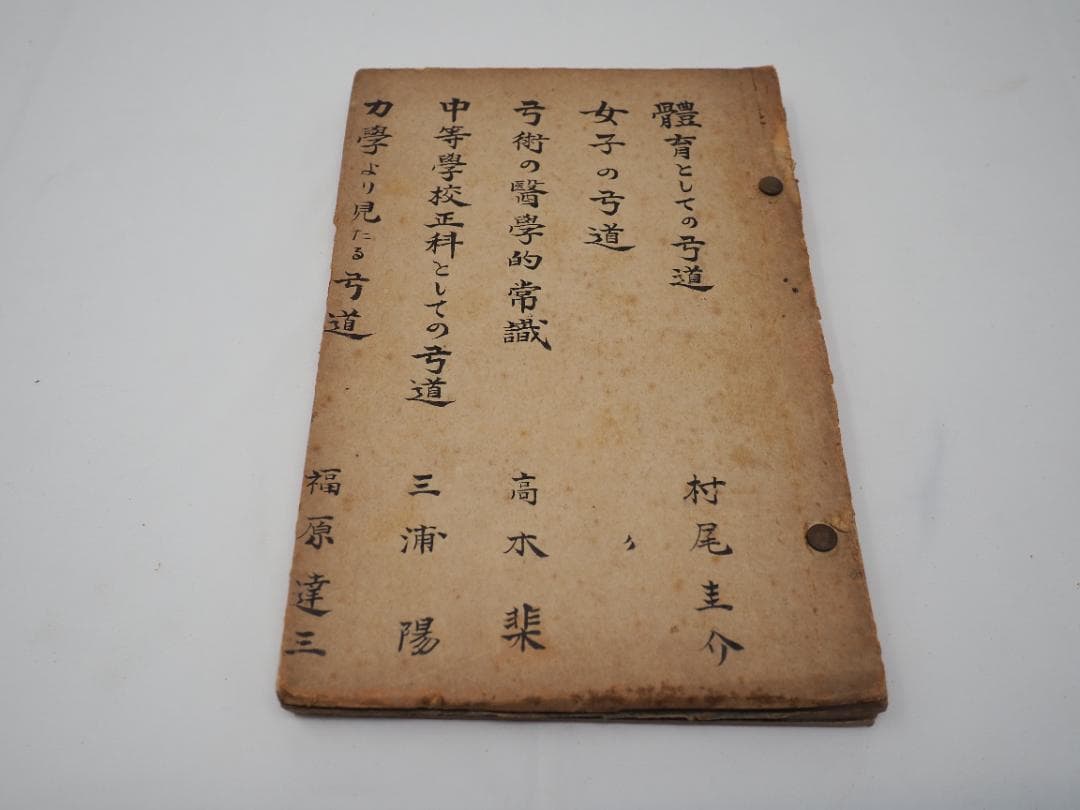 體育としての弓道 村尾圭介
女子の弓道 〃
弓術の醫學的常識 高木棐
中等學校正科としての弓道 三浦陽
力學より見たる弓道 福原達三